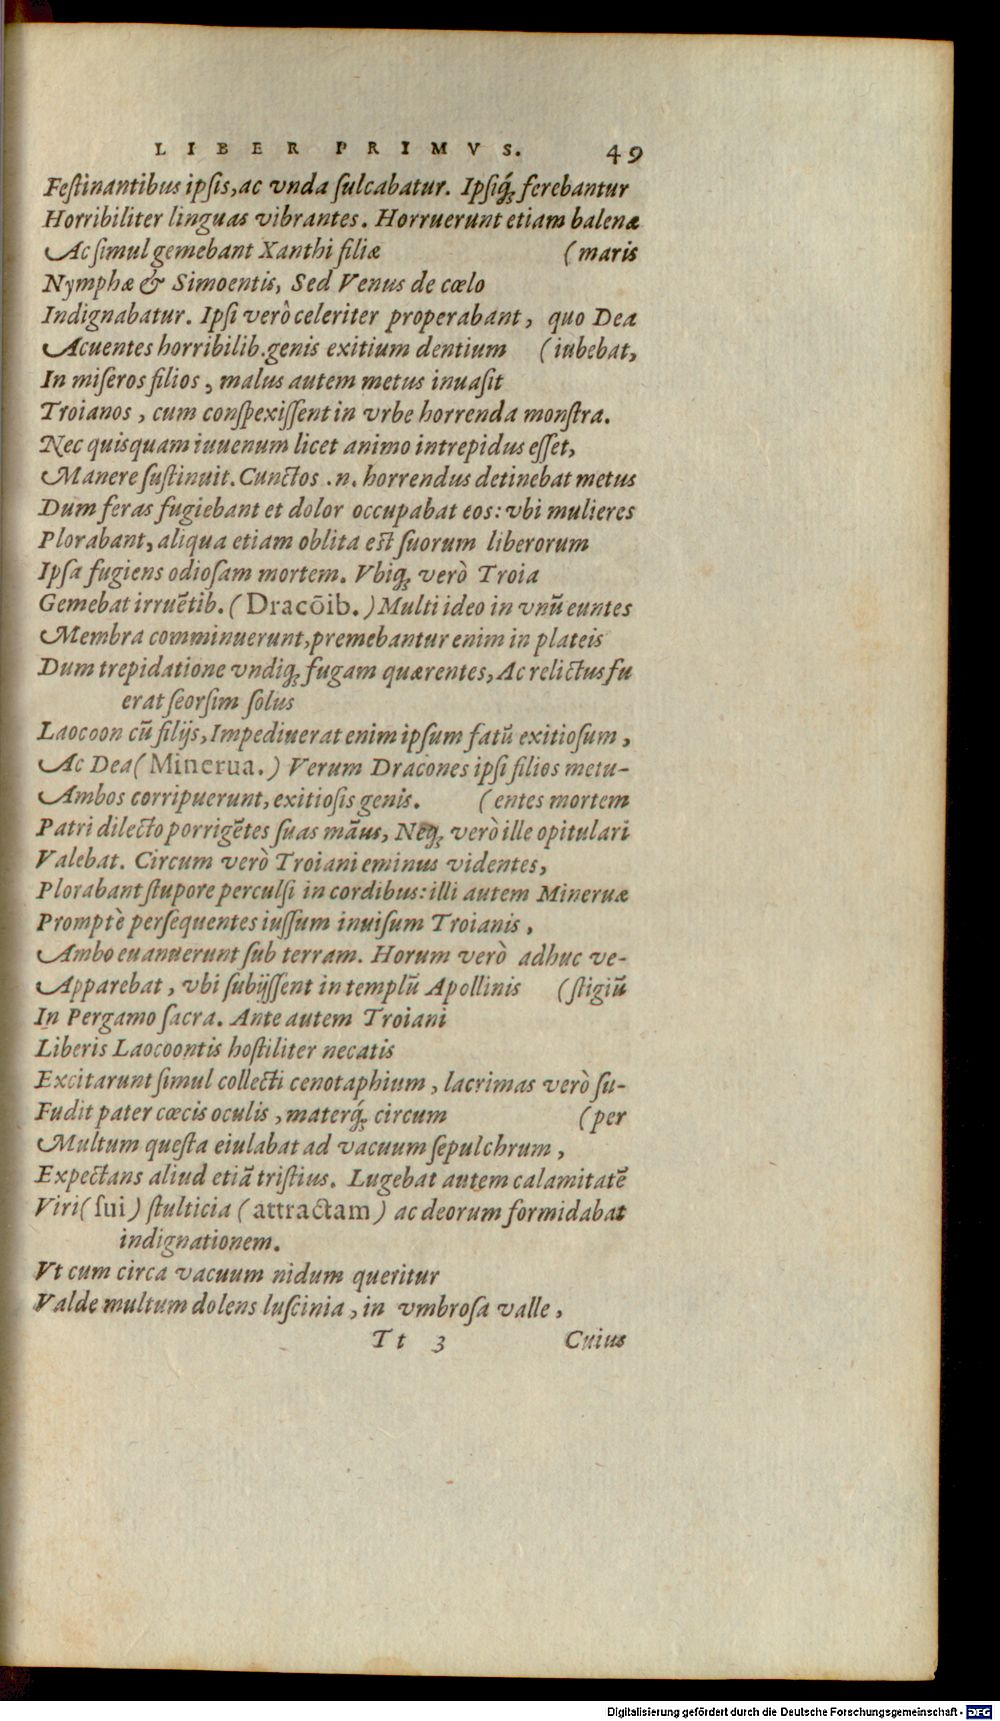 LIBER PRIMVS. 49
Festinantibus ipsis, ac vnda sulcabatur. Ipsiq́; ferebantur
Horribiliter linguas vibrantes. Horruerunt etiam balenæ
Ac simul gemebant Xanthi filiæ (maris
Nymphæ & Simoentis, Sed Venus de cœlo
Indignabatur. Ipsi verò celeriter properabant, quo Dea
Acuentes horribilib. genis exitium dentium (iubebat,
In miseros filios, malus autem metus inuasit
Troianos, cum conspexissent in vrbe horrenda monstra.
Nec quisquam iuuenum licet animo intrepidus esset,
Manere sustinuit. Cunctos .n. horrendus detinebat metus
Dum feras fugiebant et dolor occupabat eos: vbi mulieres
Plorabant, aliqua etiam oblita est suorum liberorum
Ipsa fugiens odiosam mortem. Vbiq; verò Troia
Gemebat irruētib. (Dracōib.) Multi ideo in vnū euntes
Membra comminuerunt, premebantur enim in plateis
Dum trepidatione vndiq; fugam quærentes, Ac relictus fu
erat seorsim solus
Laocoon cū filijs, Impediuerat enim ipsum fatū exitiosum,
Ac Dea (Minerua.) Verum Dracones ipsi filios metu-
Ambos corripuerunt, exitiosis genis. (entes mortem
Patri dilecto porrigētes suas māus, Neq; verò ille opitulari
Valebat. Circum verò Troiani eminus videntes,
Plorabant stupore perculsi in cordibus: illi autem Mineruæ
Promptè persequentes iussum inuisum Troianis,
Ambo euanuerunt sub terram. Horum verò adhuc ve-
Apparebat, vbi subijssent in templū Apollinis (stigiū
In Pergamo sacra. Ante autem Troiani
Liberis Laocoontis hostiliter necatis
Excitarunt simul collecti cenotaphium, lacrimas verò su-
Fudit pater cœcis oculis, materq́; circum (per
Multum questa eiulabat ad vacuum sepulchrum,
Expectans aliud etiā tristius. Lugebat autem calamitatē
Viri (sui) stulticia (attractam) ac deorum formidabat
indignationem.
Vt cum circa vacuum nidum queritur
Valde multum dolens luscinia, in vmbrosa valle,
Tt 3 Cuius
Digitalisierung gefördert durch die Deutsche Forschungsgemeinschaft - DFG